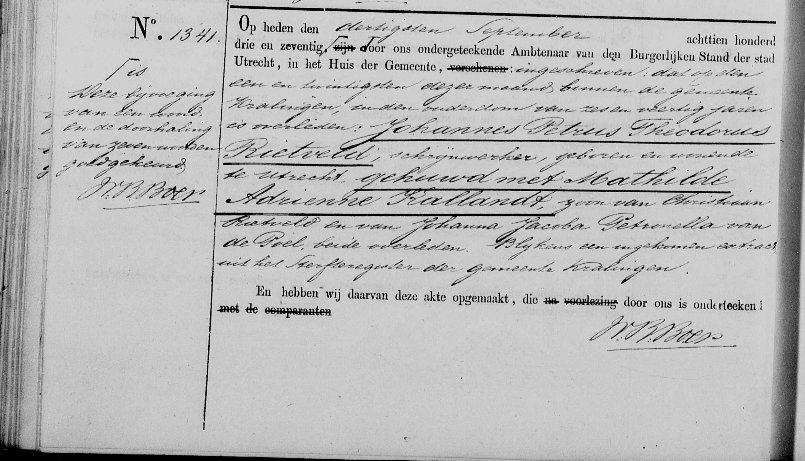 No. 1341.
Op heden den dertigsten September achttien honderd
drie en zeventig, zijn door ons ondergeteekende Ambtenaar van den Burgerlijken Stand der stad
Utrecht, in het Huis der Gemeente, verschenen: ingeschreven: dat op den
een en twintigsten dezer maand, binnen de gemeente
Kralingen, in den ouderdom van zes en veertig jaren
is overleden: Johannes Petrus Theodorus
Rietveld, schrijnwerker, geboren en wonende
te Utrecht, gehuwd met Mathilde
Adrienne Kallandt, zoon van Christiaan
Rietveld en van Johanna Jacoba Petronella van
de Poel, beide overleden. Blijkens een ingekomen extract
uit het Sterfteregister der gemeente Kralingen.
En hebben wij daarvan deze akte opgemaakt, die na voorlezing door ons is onderteeken
met de comparanten
W. B. Boer
is
Deze bijvoeging
van een woord
en de doorhaling
van zeven woorden
goedgekeurd
W. B. Boer